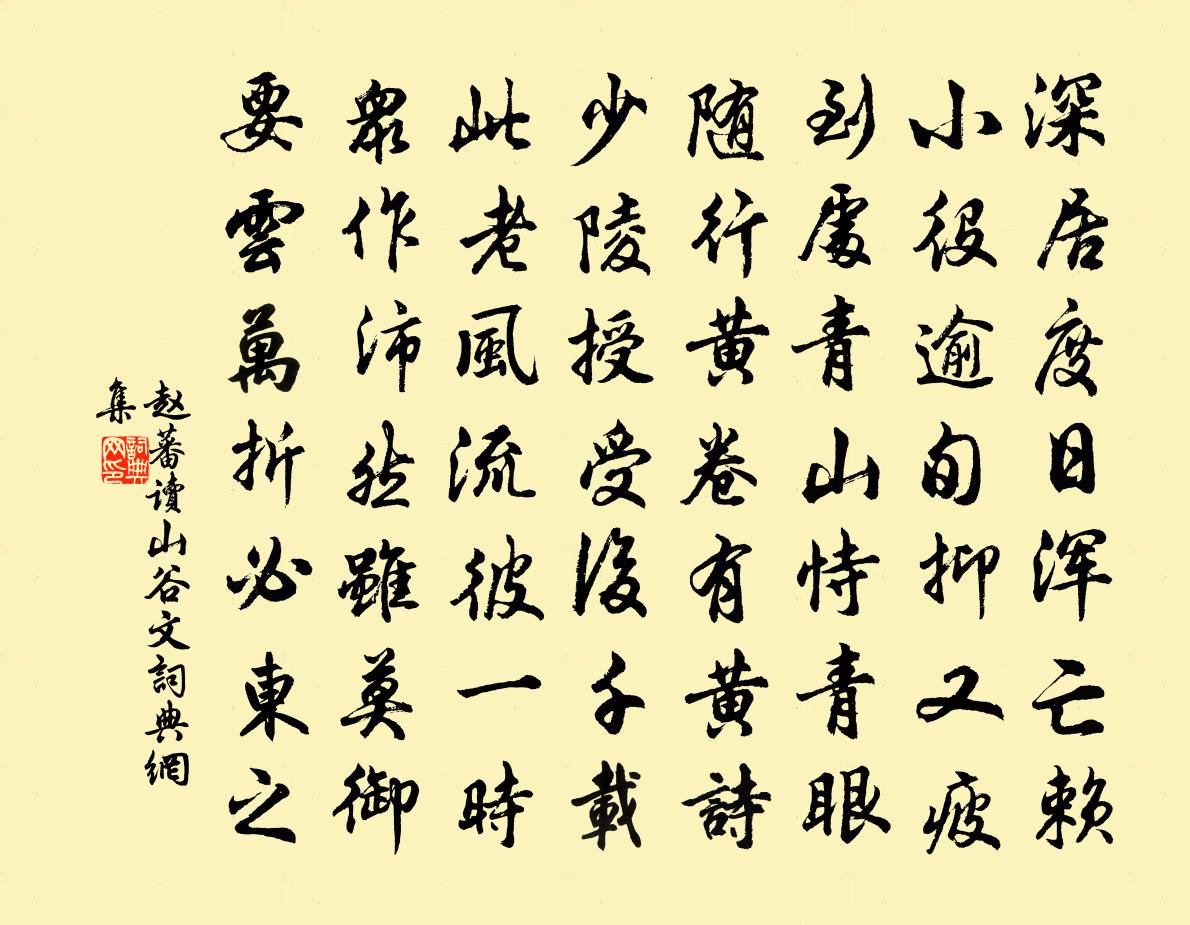 深居度日浑亡赖
小役逾旬抑又疲
到處青山恃青眼
随行黄卷有黄詩
少陵授受後千載
此老風流彼一時
衆作沛然雖莫御
要雲萬折必東之
赵蕃讀山谷文詞典網
集
詞典网印